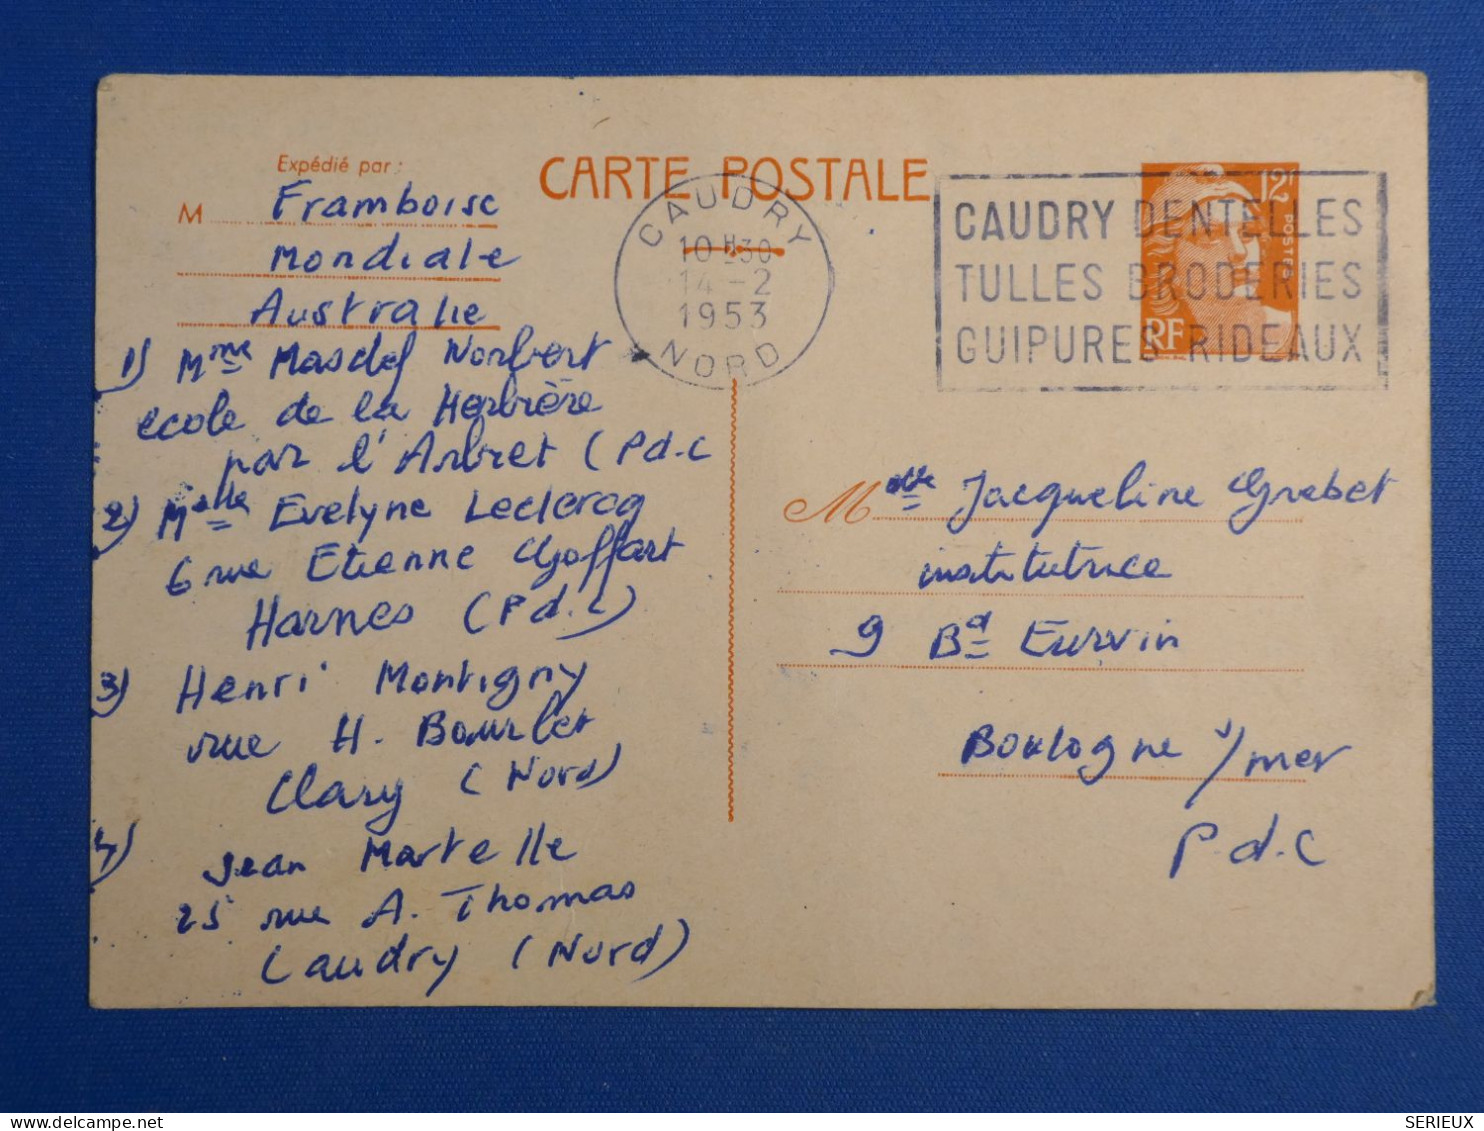 Expédié par :
M Framboise
Mondiale
Australie
1) Mme Masclef Norbert
ecole de la Herlière
par l'Arbret (P.d.C
2) Melle Evelyne Leclercq
6 rue Etienne Goffart
Harnes (P.d.C)
3) Henri Montigny
rue H. Bourlet
Clary (Nord)
4) Jean Martelle
25 rue A. Thomas
Caudry (Nord)
CARTE POSTALE
CAUDRY
10H30
14-2
1953
NORD
CAUDRY DENTELLES
TULLES BRODERIES
GUIPURES RIDEAUX
12F
POSTES
RF
Melle Jacqueline Grebet
institutrice
9 Bd Eurvin
Boulogne s/mer
P.d.C
SERIEUX